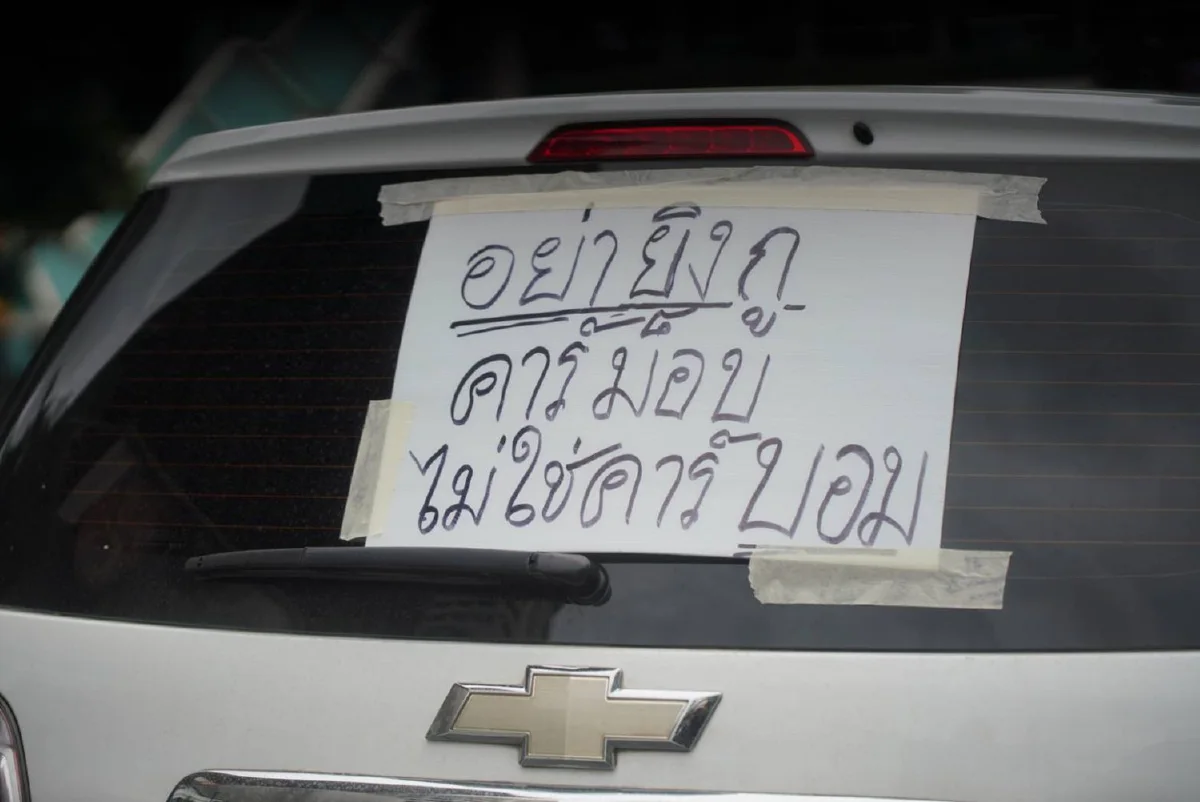 อย่ายิงกู
คาร์ม็อบ
ไม่ใช่คาร์บอม